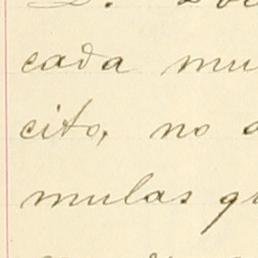 cada mu
cito, no
mulas qu